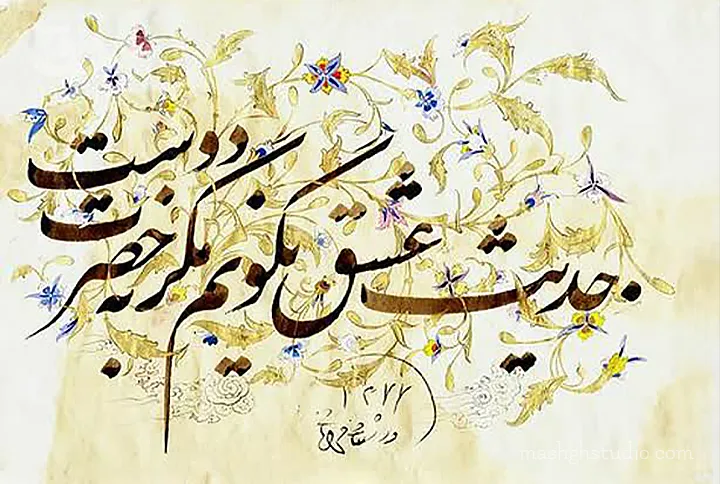 حدیث عشق نگویم مگر به حضرت دوست
mashghstudio.com